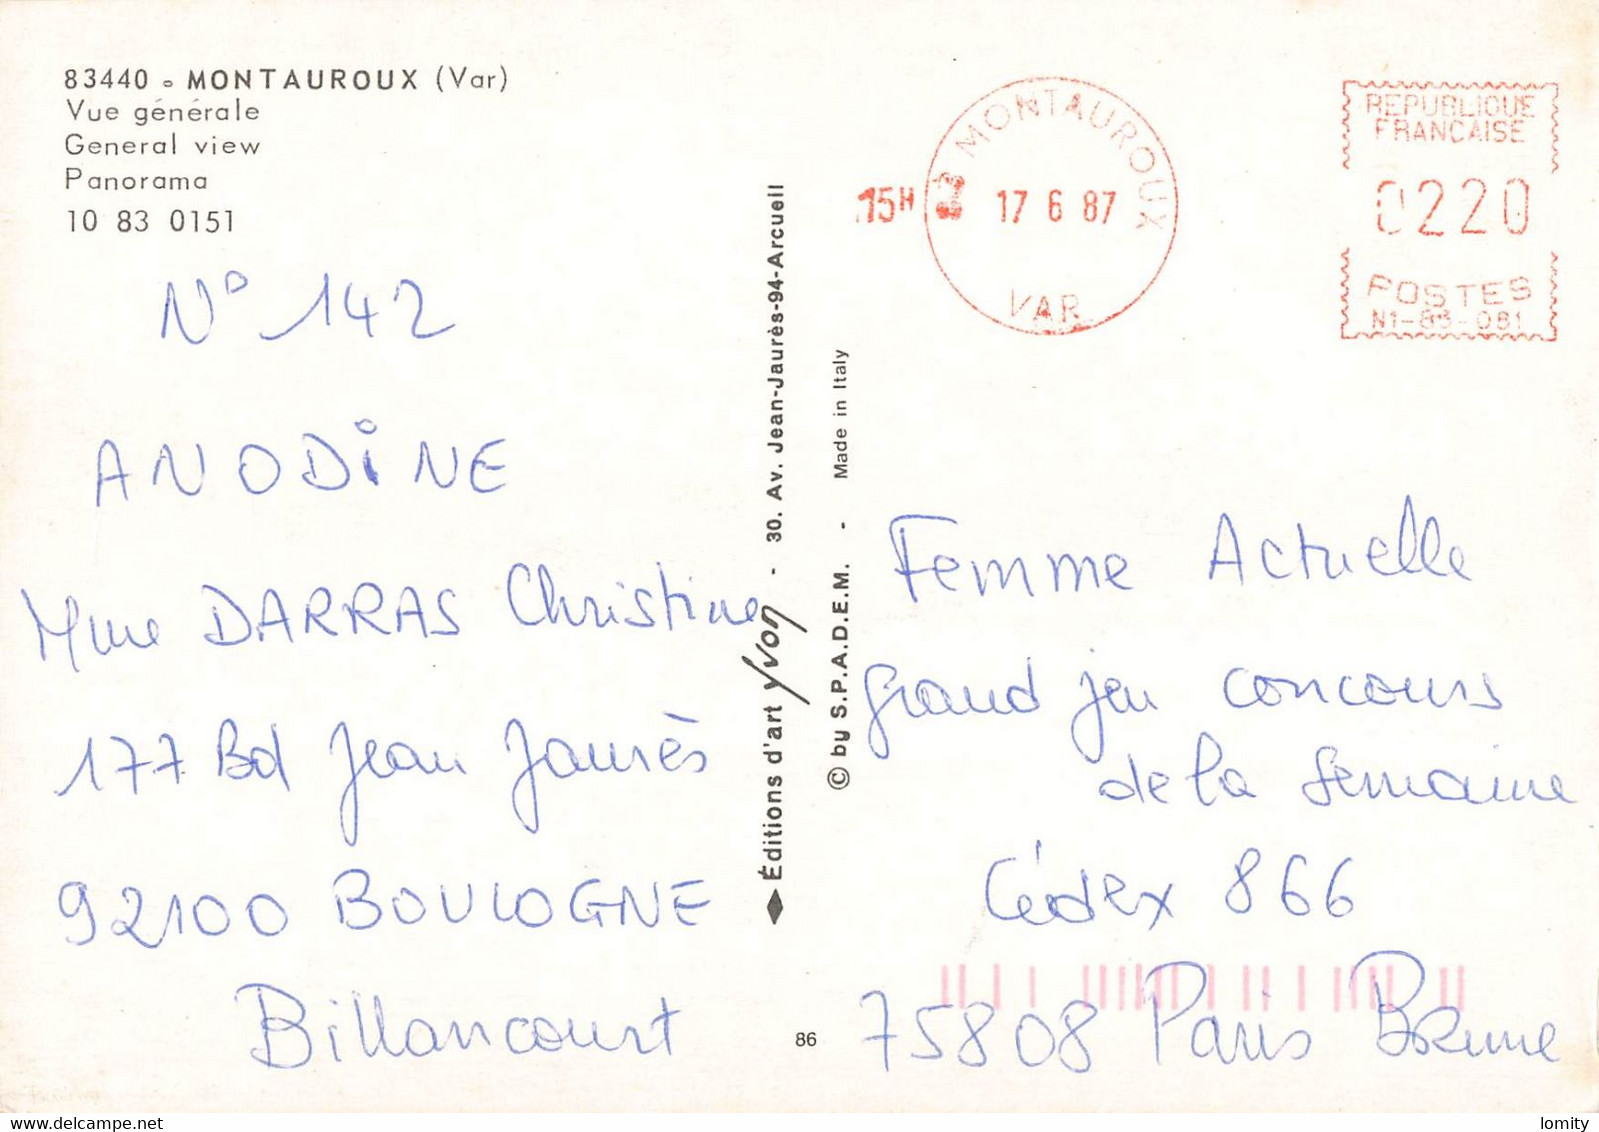 83440 - MONTAUROUX (Var)
Vue générale
General view
Panorama
10 83 0151
N° 142
ANODINE
Mme DARRAS Christine
177 Bd Jean Jaurès
92100 BOULOGNE
Billancourt
Éditions d'art Yvon - 30. Av. Jean-Jaurès-94-Arcueil
© by S.P.A.D.E.M. - Made in Italy
86
15H
MONTAUROUX
17 6 87
VAR
REPUBLIQUE
FRANCAISE
0220
POSTES
N1-83-081
Femme Actuelle
grand jeu concours
de la semaine
Cédex 866
75808 Paris Brune
lomity